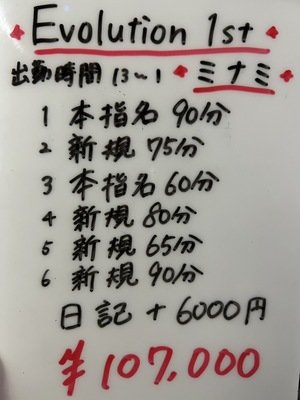 Evolution 1st
出勤時間 13~1 ミナミ
1 本指名 90分
2 新規 75分
3 本指名 60分
4 新規 80分
5 新規 65分
6 新規 90分
日記 + 6000円
¥107,000